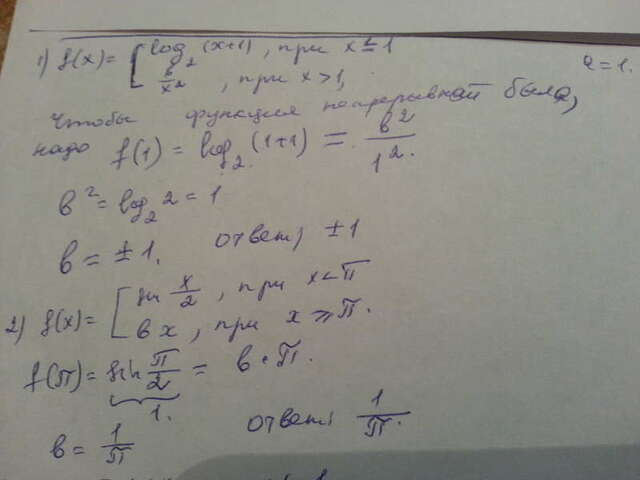 1) f(x) = [ log₂(x+1), при x ≤ 1
в/x², при x > 1, a = 1.
Чтобы функция непрерывной была,
надо f(1) = log₂(1+1) = в²/1².
в² = log₂2 = 1
в = ±1. ответ, ±1
2) f(x) = [ sin x/2, при x < π
вx, при x ⩾ π.
f(π) = sin π/2 = в·π.
1.
в = 1/π ответ: 1/π.